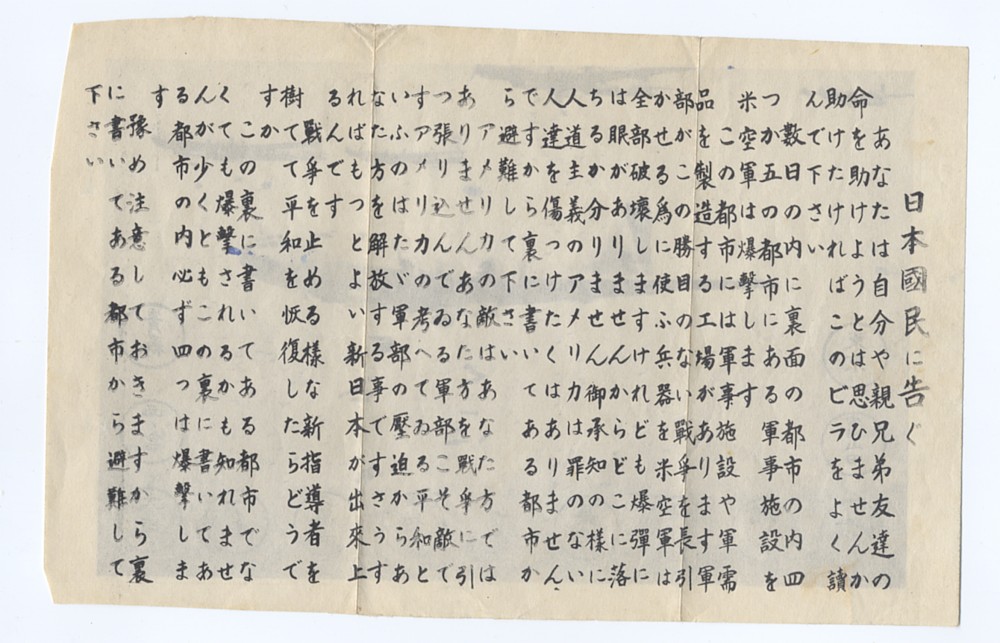 日本國民に告ぐ
あなたは自分や親兄弟友達の
命を助けようとは思ひませんか
助けたければこのビラをよく讀
んで下さい
数日の内に裏面の都市の内四
つか五の都市にある軍事施設を
米空軍は爆撃します
この都市には軍事施設や軍需
品を製造する工場があります軍
部がこの勝目のない戰爭を長引
かせる爲に使ふ兵器を米空軍は
全部破壞しますけれども爆彈に
は眼がありませんからどこに落
ちるか分りません御承知の樣に
人道主義のアメリカは罪のない
人達を傷つけたくはありません
ですから裏に書いてある都市か
ら避難して下さい
アメリカの敵はあなた方では
ありませんあなた方を戰爭に引
つ張り込んでゐる軍部こそ敵で
すアメリカの考へてゐる平和と
いふのはたゞ軍部の壓迫からあ
なた方を解放する事ですさうす
ればもつとよい新日本が出來上
るんです
戰爭を止める樣な新指導者を
樹てて平和を恢復したらどうで
すか
この裏に書いてある都市でな
くても爆撃されるかも知れませ
んが少くともこの裏に書いてあ
る都市の内必ず四つは爆撃しま
す
豫め注意しておきますから裏
に書いてある都市から避難して
下さい